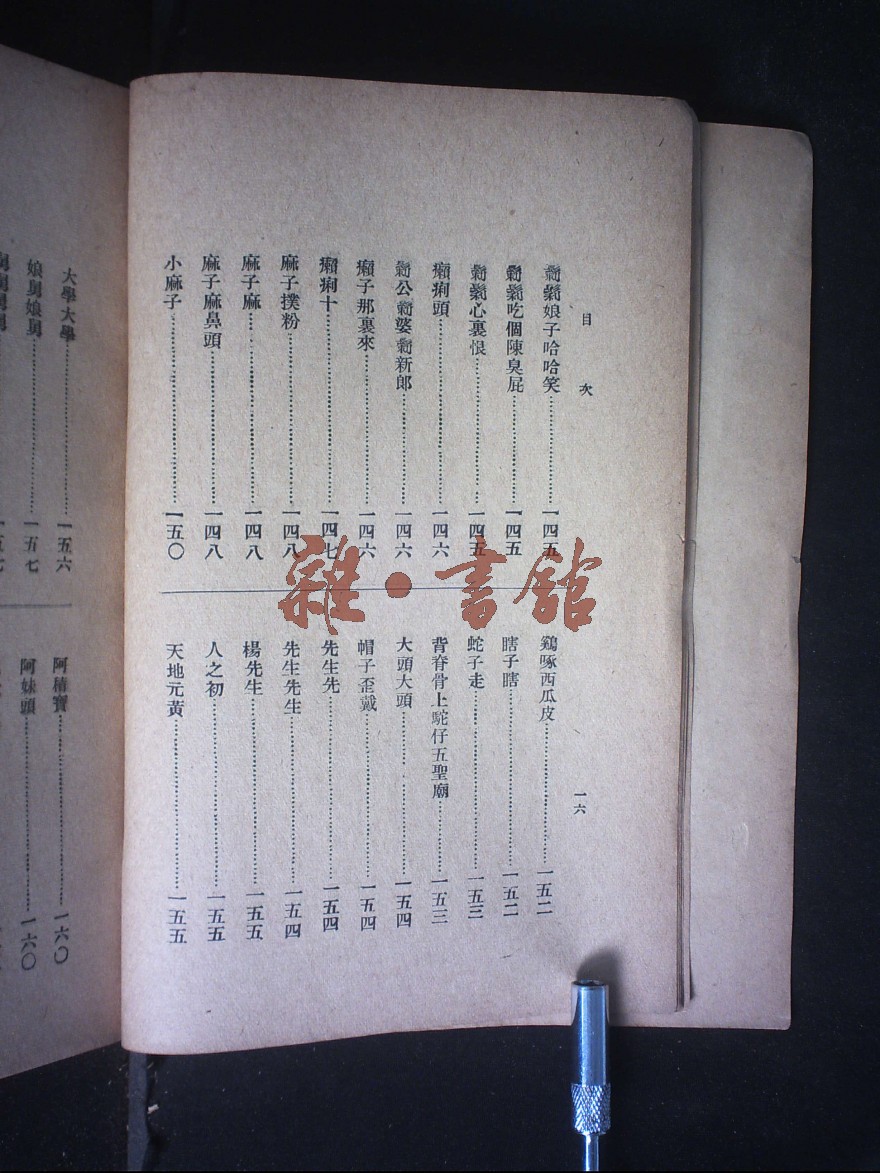 目次
一六
娘子哈哈笑……一四五
吃個陳臭屁……一四五
心裏恨……一四五
癩痢頭……一四六
公婆新郎……一四六
癩子那裏來……一四六
癩痢十……一四七
麻子撲粉……一四八
麻子麻……一四八
麻子麻鼻頭……一四八
小麻子……一五〇
鷄啄西瓜皮……一五二
瞎子瞎……一五二
蛇子走……一五三
背脊骨上駝仔五聖廟……一五三
大頭大頭……一五四
帽子歪戴……一五四
先生先……一五四
先生先生……一五四
楊先生……一五五
人之初……一五五
天地元黃……一五五
大學大學……一五六
娘舅娘舅……一五七
阿寶……一六〇
阿妹頭……一六〇
雜·書館